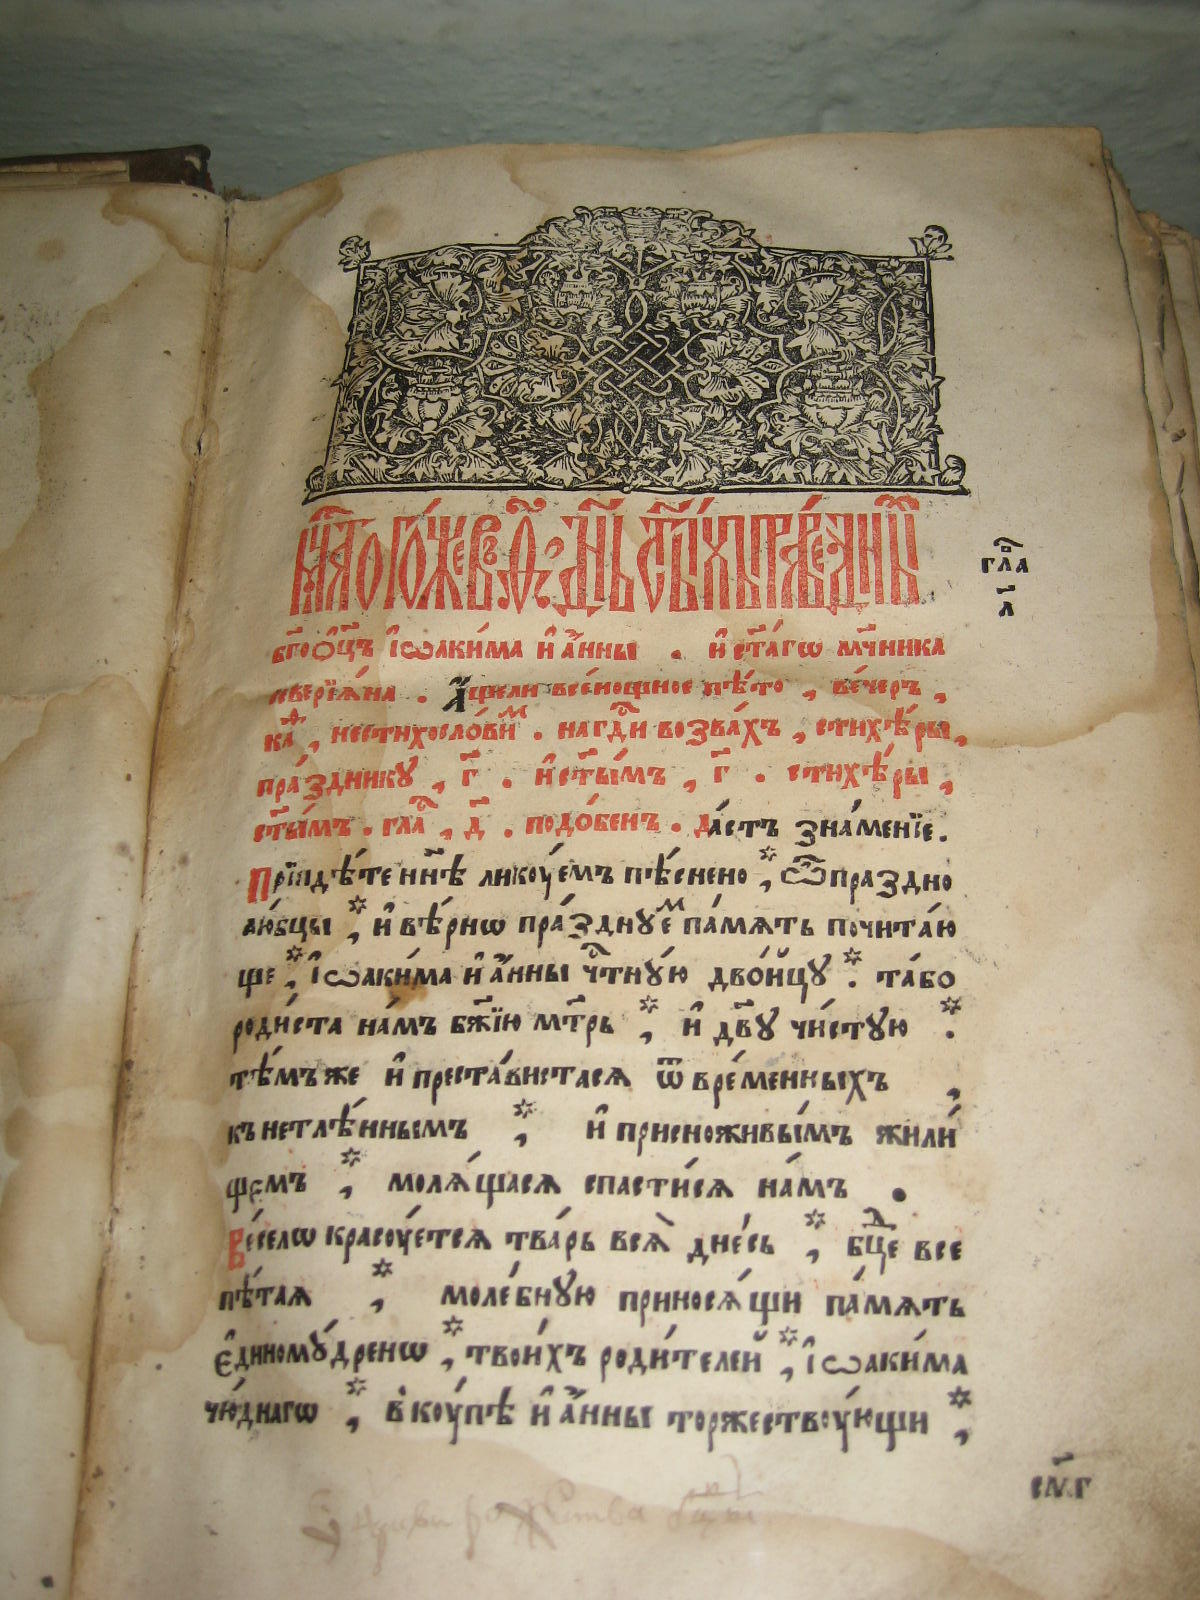 тогѡ́же в҃ ѳ҃ . дн҃ь ст҃ы́хъ пра́ведникъ
бг҃оѻц҃ъ і҆ѡаки́ма и҆ а҆́нны . и҆ ст҃а́гѡ мч҃ника
северїѧ́на . а҆́щели все́нощное пѣ́то , ве́черъ ,
каѳ , нестихосло́вим . на гд҇и возва́хъ , стихѣ́ры ,
пра́зднику , г҃ . и҆ ст҃ы́мъ , г҃ . стихѣ́ры ,
ст҃ы́мъ . гла҇ , д҃ . подо́бенъ . да́стъ зна́менїе .
Прїидѣ́те нн҃ѣ ликоу́емъ пѣ́снено * , ѽ праздно
лю́бцы * , и҆ вѣ́рнѡ пра́зднуем па́мѧть почита́ю
ще * , і҆ѡаки́ма и҆ а҆́нны чт҇ну́ю дво́ицу * . та́бо
роди́ста на́мъ бж҃їю мт҃рь * , и҆ дв҃у чи́стую * .
тѣ́мъже и҆ преста́вистасѧ ѿ вре́менныхъ ,
къ нетлѣ́ннымъ * , и҆ присноживы́мъ жили́
щемъ * , молѧ́щасѧ спасти́сѧ на́мъ .
Ве́селѡ красоу́етсѧ тва́рь всѧ̀ дне́сь * , бц҃де все
пѣ́таѧ * , моле́бную приносѧ́щи па́мѧть
є҆диному́дренѡ * , твои́хъ роди́телей * , і҆ѡаки́ма
чю́днагѡ * , вкоу́пѣ и҆ а҆́нны торжествоу́ющи * ,
гла҇
л҃
см҃г